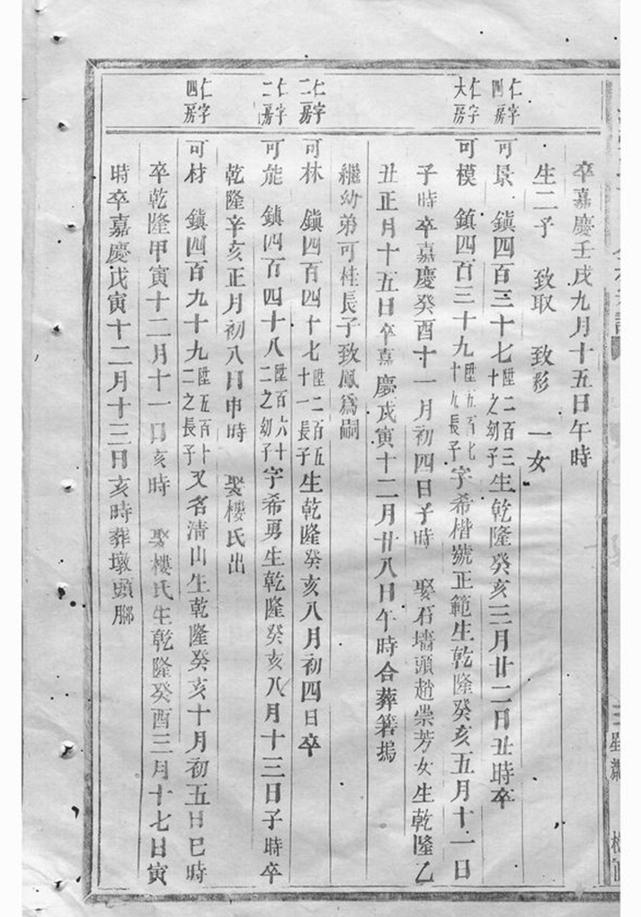 卒嘉慶壬戌九月十五日午時
生二子　致取　致彩　一女
仁字四房
可景　鎮四百三十七陞二百三十之幼子生乾隆癸亥三月廿二日丑時卒
仁字大房
可模　鎮四百三十九陞五百七十九長子字希楷號正範生乾隆癸亥五月十一日
子時卒嘉慶癸酉十一月初四日子時　娶石墻頭趙崇芳女生乾隆乙
丑正月十五日卒嘉慶戊寅十二月廿八日午時合葬箬塢
繼幼弟可桂長子致鳳爲嗣
仁字二房
可林　鎮四百四十七陞二百五十一長子生乾隆癸亥八月初四日卒
仁字二房
可能　鎮四百四十八陞百六十二之幼子字希勇生乾隆癸亥八月十三日子時卒
乾隆辛亥正月初八日申時　娶樓氏出
仁字四房
可材　鎮四百九十九陞五百十二之長子又名清山生乾隆癸亥十月初五日巳時
卒乾隆甲寅十二月十一日亥時　娶樓氏生乾隆癸酉三月十七日寅
時卒嘉慶戊寅十二月十三日亥時葬墩頭腳